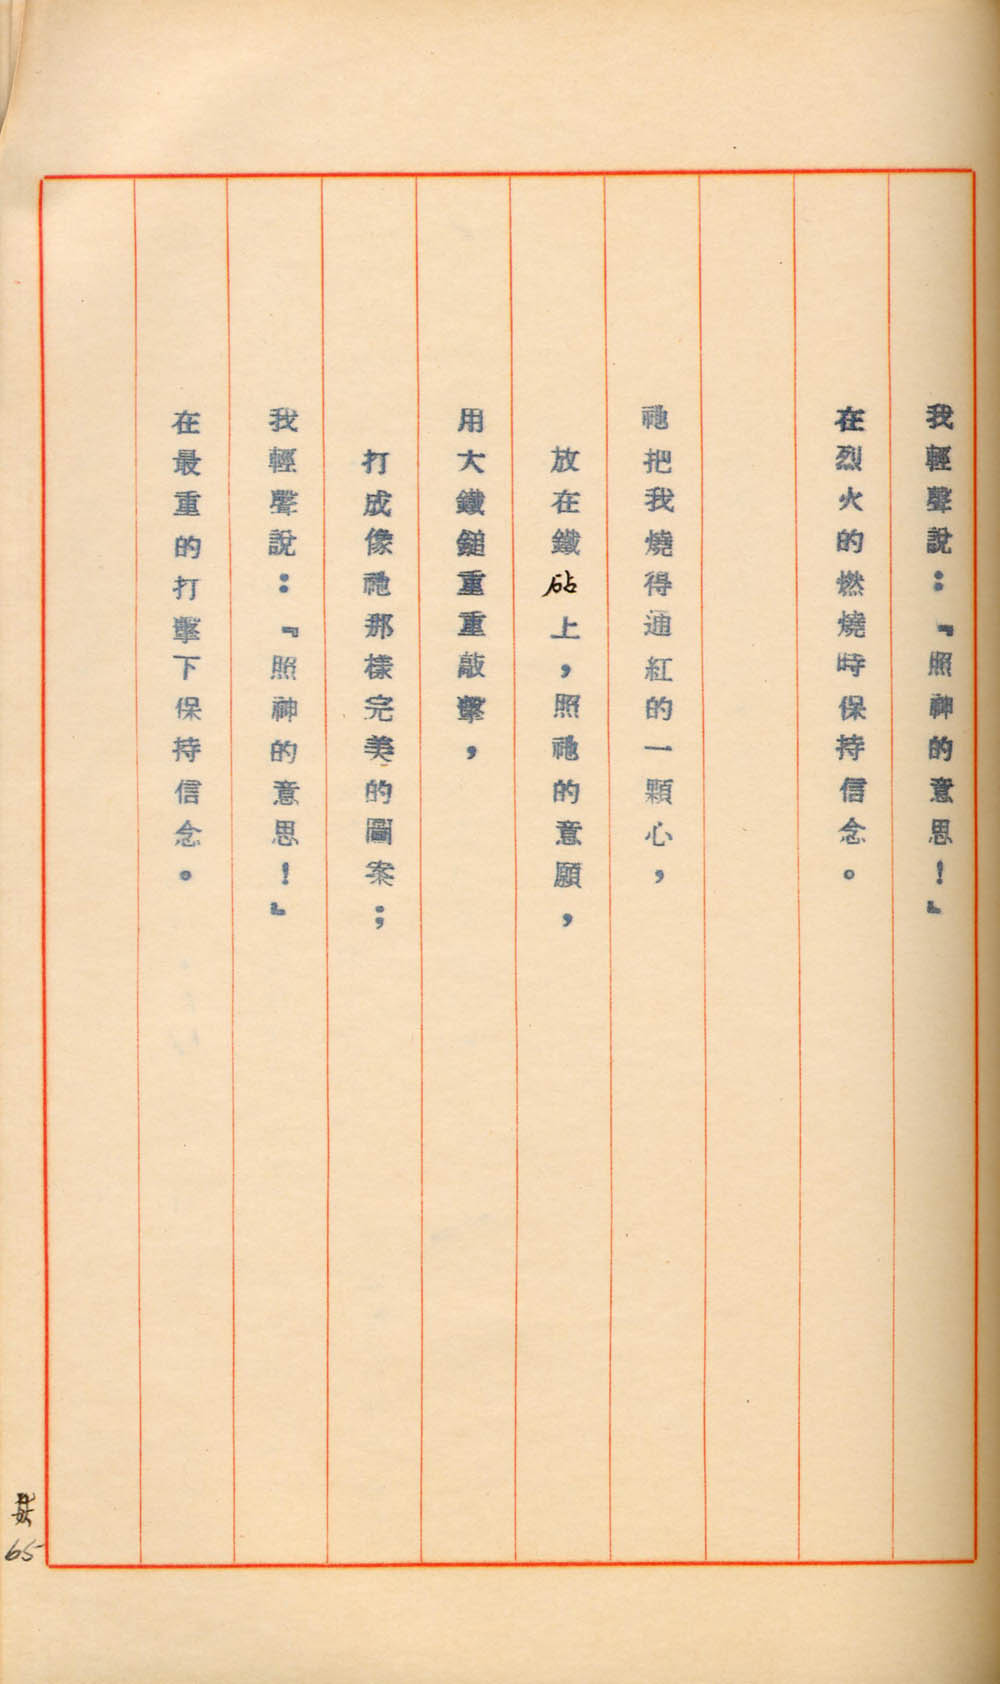 我輕聲說：『照神的意思！』
在烈火的燃燒時保持信念。
祂把我燒得通紅的一顆心，
放在鐵砧上，照祂的意願，
用大鐵鎚重重敲擊，
打成像祂那樣完美的圖案；
我輕聲說：『照神的意思！』
在最重的打擊下保持信念。
65